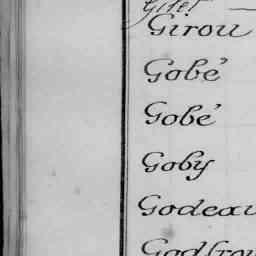 Gitet
Girou
Gobé
Gobé
Goby
Godeau
Godfroy